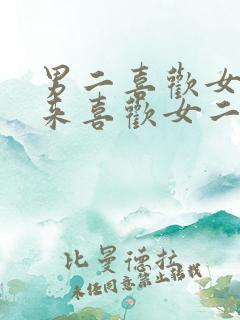 男二喜歡女
來喜歡女二
比曼德拉
未任同意禁止轉載